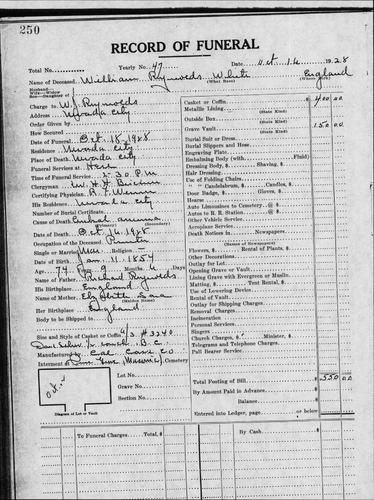 250
RECORD OF FUNERAL
Total No. Yearly No. 47 Date Oct 16 1928
Name of Deceased William Reynolds White England
(What Race) (Where Born)
Husband—
Wife—Widow
Son—Daughter of
Charge to W. J. Reynolds
Address Nevada City
Order Given by
How Secured
Date of Funeral Oct 18, 1928
Residence Nevada City
Place of Death Nevada City
Funeral Services at Here
Time of Funeral Service 2-30 P.M
Clergyman W. H.
Certifying Physician
His Residence Nevada City
Number of Burial Certificate
Cause of Death
(Primary) (Secondary)
Date of Death Oct 16 1928
Occupation of the Deceased
Single or Married Religion
Date of Birth Jan 11 1854
Age 74 Yrs. 9 Months 6 Days
Name of Father Richard Reynolds
His Birthplace England
Name of Mother Elizabeth
(Maiden Name)
Her Birthplace England
Body to be Shipped to
Size and Style of Casket or Coffin 6/3 #3340
Manufactured by Cal Cask Co
Interment at Masonic Cemetery
Lot No.
Grave No.
Section No.
Diagram of Lot or Vault
Casket or Coffin $ 400 00
Metallic Lining
(State Kind)
Outside Box
(State Kind)
Grave Vault 150 00
(State Kind)
Burial Suit or Dress
Burial Slippers and Hose
Engraving Plate
Embalming Body (with Fluid)
Dressing Body, $ Shaving, $
Hair Dressing
Use of Folding Chairs
" " Candelabrum, $ Candles, $
Door Badge, $ Gloves, $
Hearse
Auto Limousines to Cemetery @ $
Autos to R. R. Station @ $
Other Vehicle Service
Aeroplane Service
Death Notices in Newspapers
(Names of Newspapers)
Flowers, $ Rental of Plants, $
Other Decorations
Outlay for Lot
Opening Grave or Vault
Lining Grave with Evergreen or Muslin
Matting, $ Tent Rental, $
Use of Lowering Device
Rental of Vault
Outlay for Shipping Charges
Removal Charges
Incineration
Personal Services
Singers
Church Charges, $ Minister, $
Telegrams and Telephone Charges
Pall Bearer Service
Total Footing of Bill $ 550 00
By Amount Paid in Advance
Balance
Entered into Ledger, page or below
To Funeral Charges Total, $ By Cash $